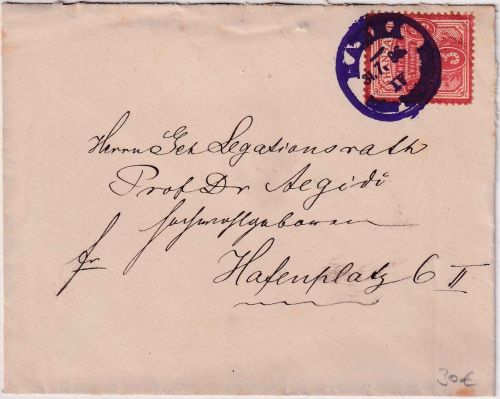 HANSA
3
31.7.86
IV
Herrn Geh Legationsrath
Prof Dr Aegidi
Hochwohlgeboren
fr Hafenplatz 6 II
30€